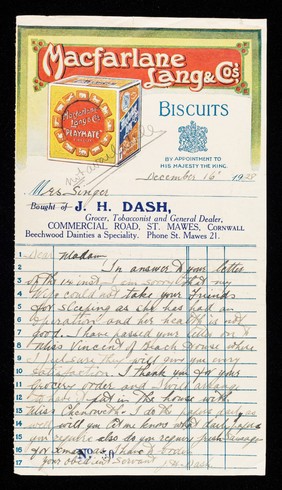 Macfarlane
Lang & Co's
Macfarlane
Lang & Co's
"PLAYMATE"
BISCUITS
BY APPOINTMENT TO
HIS MAJESTY THE KING.
December 16th 1928
Mrs Singer
Bought of J. H. DASH,
Grocer, Tobacconist and General Dealer,
COMMERCIAL ROAD, ST. MAWES, CORNWALL
Beechwood Dainties a Speciality. Phone St. Mawes 21.
1 Dear Madam
2 In answer to your letter
3 of the 14 inst I am sorry that my
4 Wife could not take your Friends
5 for sleeping as she has had an
6 Operation and her health is not
7 good. I have passed your letter on to
8 Miss Vincent of Beach House where
9 I feel sure they will give you every
10 satisfaction. I thank you for your
11 Grocery order and I will arrange
12 to put in the house with
13 Miss Chenoweth. I do the papers daily as
14 well will you let me know what daily papers
15 you require also do you require fresh
16 for Xmas as I have
17 your obedient Servant J H Dash
No 50